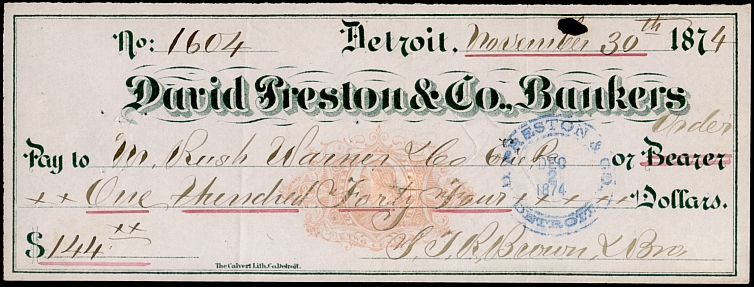 No: 1604 Detroit, November 30th 1874
David Preston & Co., Bankers
Order
Pay to M. Rush Warner & Co or Bearer
xx One Hundred Forty Four xxxxx Dollars.
$144 xx
PRESTON & CO. DEC 2 1874 DETROIT
S. T. R. Brown, & Bro
The Calvert Lith. Co. Detroit.